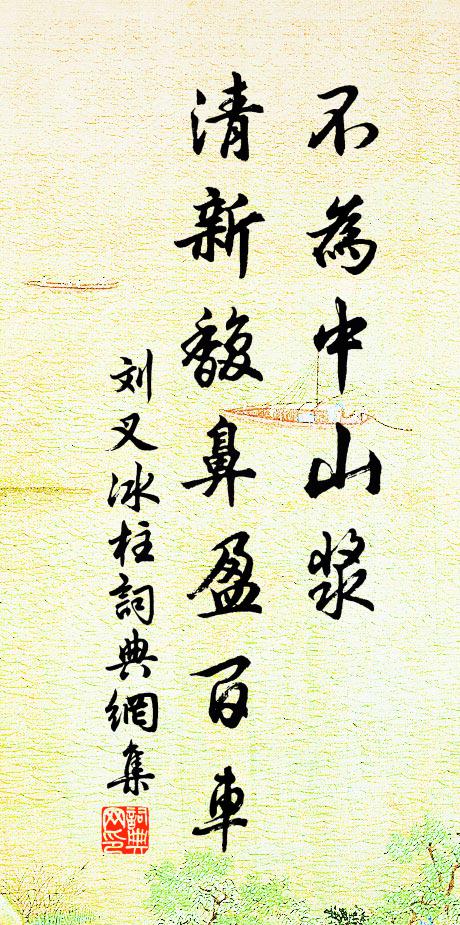 不為中山漿
清新馥鼻盈百車
刘叉冰柱詞典網集
詞典网印